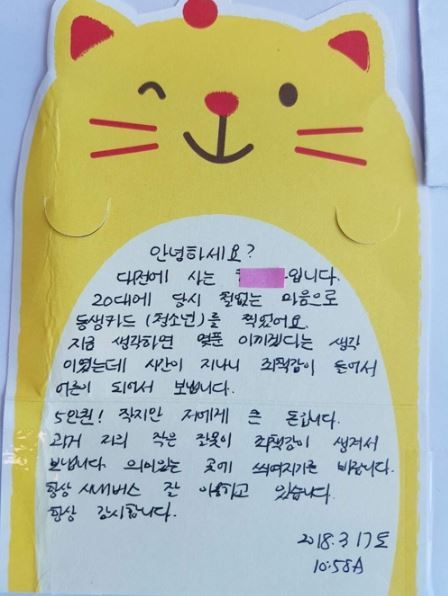 안녕하세요?
대전에 사는 입니다.
20대에 당시 철없는 마음으로
동생카드 (청소년)를 찍었어요.
지금 생각하면 몇푼 아끼겠다는 생각
이었는데 시간이 지나니 죄책감이 들어서
어른이 되어서 보냅니다.
5만원! 작지만 저에게 큰 돈입니다.
과거 저의 작은 잘못이 죄책감이 생겨서
보냅니다. 의미있는 곳에 쓰여지기를 바랍니다.
항상 시내버스 잘 이용하고 있습니다.
항상 감사합니다.
2018.3.17토
10:58A